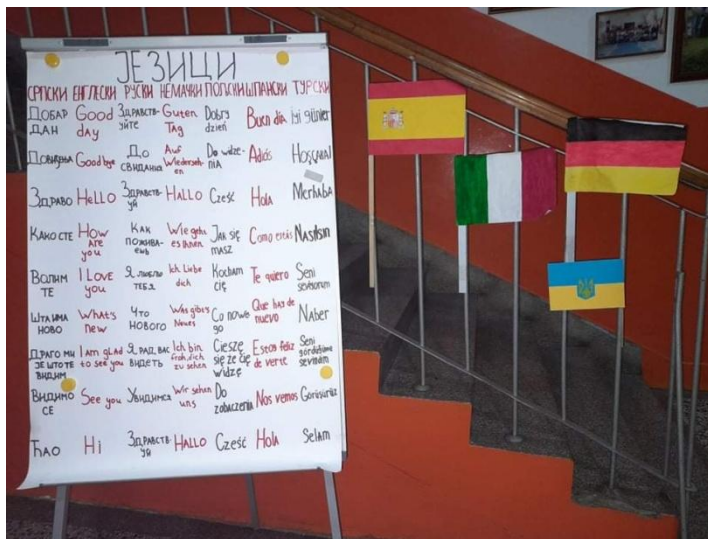 ЈЕЗИЦИ
СРПСКИ ЕНГЛЕСКИ РУСКИ НЕМАЧКИ ПОЛСКИ ШПАНСКИ ТУРСКИ
ДОБАР ДАН Good day ЗДРАВСТВ-УЙТЕ Guten Tag Dobry dzień Buen día iyi günler
ДОВИЂЕЊА Goodbye ДО СВИДАНЬЯ Auf Wiederseh-en Do widze-nia Adiós HOŞÇAKAL
ЗДРАВО HeLLO ЗДРАВСТВ-УЙ HALLO Cześć Hola Merhaba
КАКО СТЕ How ARE you КАК ПОЖИВА-ЕШЬ Wie geht es Ihnen JAK się MASZ Como estás NASILSIN
ВОЛИМ ТЕ I LOVE you Я люблю ТЕБЯ Ich Liebe dich Kocham cię Te quiero Seni seviyorum
ШТА ИМА НОВО What's new ЧТО НОВОГО Was gibt's Neues Co nowego Que hay de nuevo NABER
ДРАГО МИ ЈЕ ШТО ТЕ ВИДИМ I am gLAD to see you Я РАД ВАС ВИДЕТЬ Ich bin froh, dich zu sehen Cieszę się że cię widzę Estoy feliz de verte Seni gördüğüme sevindim
ВИДИМО СЕ See you УВИДИМСЯ Wir sehen uns Do zobaczenia Nos vemos Görüşürüz
ЋАО Hi ЗДРАВСТВ-УЙ HALLO Cześć Hola Selam